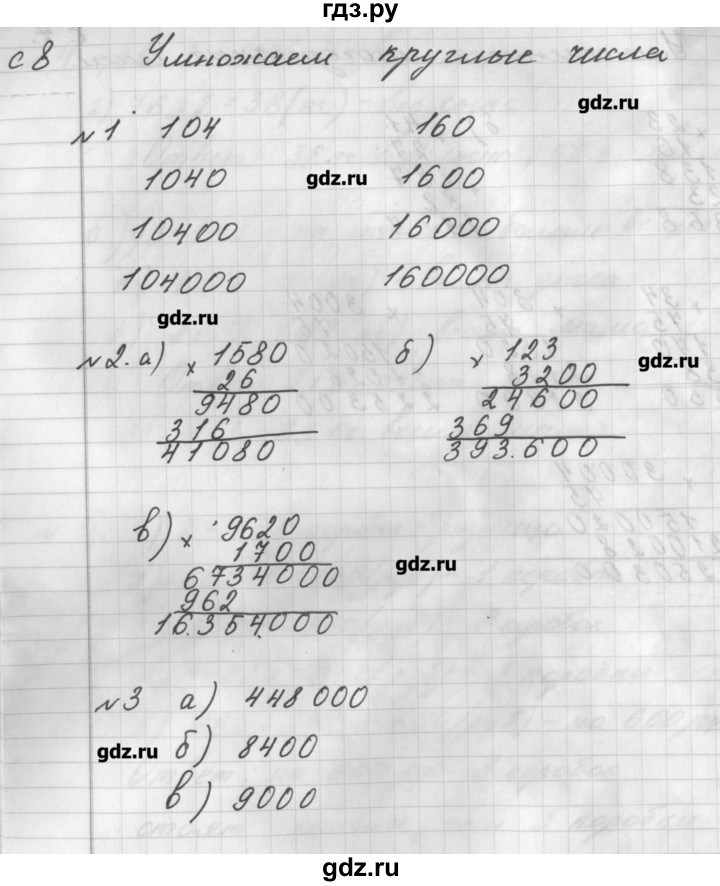 гдз.ру
с 8 Умножаем круглые числа
gdz.ru
№1 104 160
1040 gdz.ru 1600
10400 16000
104000 160000
gdz.ru
№2. а) × 1580 б) × 123 gdz.ru
26 3200
9480 24600
316 369
41080 393.600
в) × 9620
1700 gdz.ru
6734000
962
16.354.000
№3 а) 448 000
gdz.ru б) 8400
в) 9000
gdz.ru